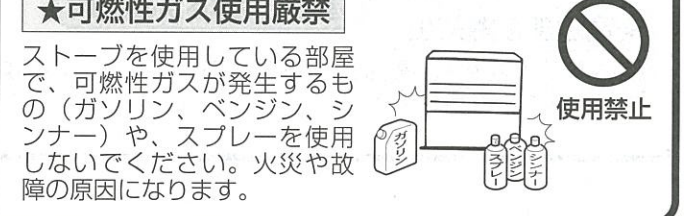 ★可燃性ガス使用厳禁
ストーブを使用している部屋
で、可燃性ガスが発生するも
の（ガソリン、ベンジン、シ
ンナー）や、スプレーを使用
しないでください。火災や故
障の原因になります。
使用禁止
ガソリン
スプレー
ベンジン
シンナー